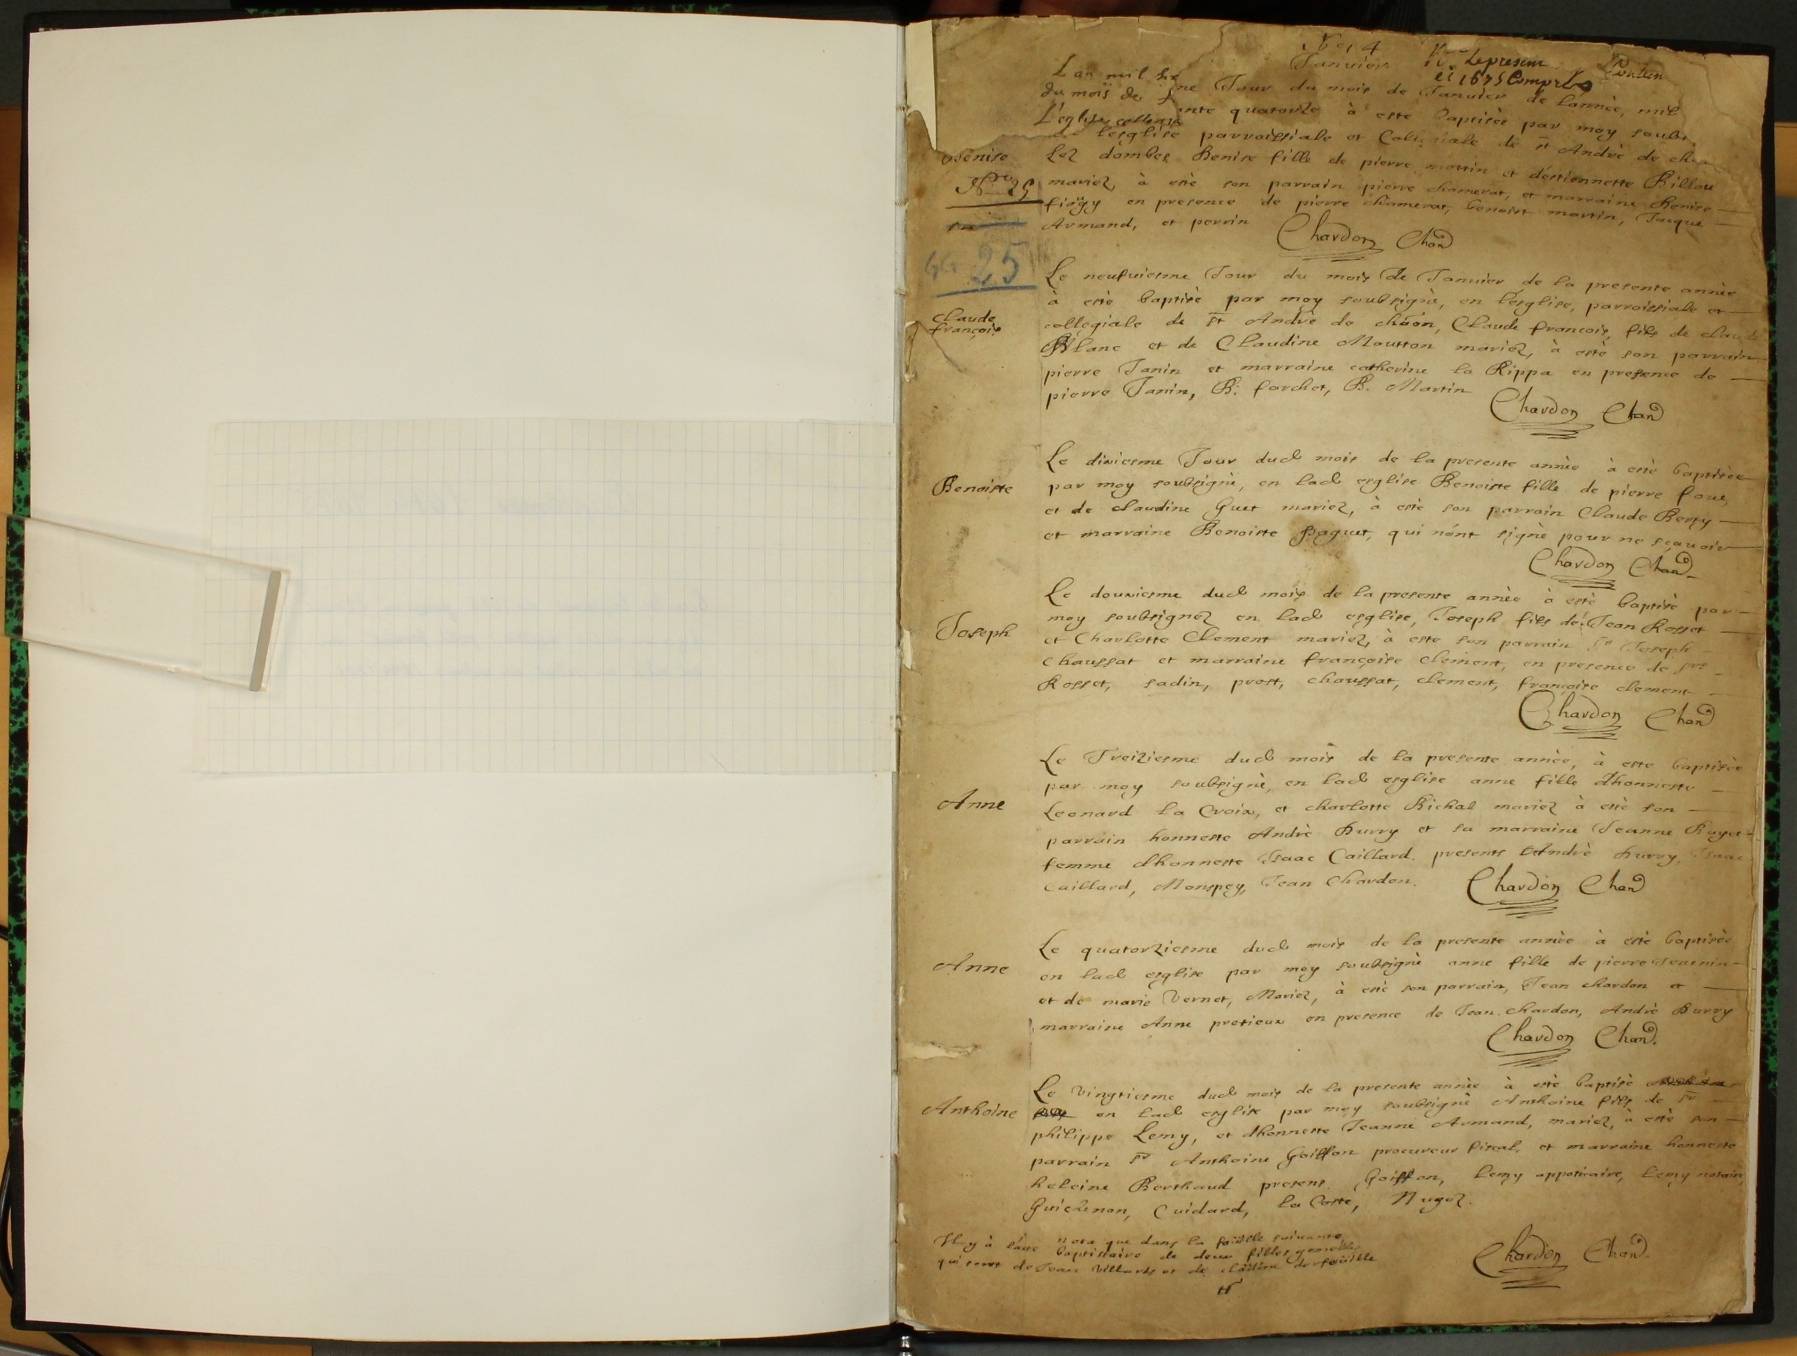 No 14
Janvier
Le present
et 1675 Compris
Contien
L'an mil six
du mois de
L'eglise collegi
ne Jour du mois de Janvier de lannèe, mil
ante quatorze à este baptisée par moy soubs
lesglise parroissiale et Collegiale de st Andrè de
Denise
Lez dombes Denise fille de pierre martin et destiennette Billou
No 25
mariez, à estè son parrain pierre chamerat, et marraine Denise
en presence de pierre chamerat, benoist martin, Jacque
Armand, et perrin
Chardon Chan
GG 25
Le neufviesme Jour du mois de Janvier de la presente annèe
à estè baptisè par moy soubsignè, en lesglise, parroissiale et
Claude
françois
collegiale de st Andrè de chaon, Claude francois, fils de claude
Blanc et de Claudine Moutton mariez, à estè son parrain
pierre Janin et marraine catherine la Rippa en presence de
pierre Janin, B. forchet, B. Martin
Chardon Chan
Le dixiesme Jour dud mois de la presente annèe à estè baptisèe
Benoiste
par moy soubsignè, en lad esglise Benoiste fille de pierre
et de claudine Guet mariez, à estè son parrain Claude
et marraine Benoiste paquet, qui nónt signè pour ne sçavoir
Chardon Chan
Le douziesme dud mois de la presente annèe à estè baptisè par
Joseph
moy soubsignez en lad esglise, Joseph fils de Jean Rosset
et Charlotte Clement mariez, à este son parrain sr Joseph
Chaussat et marraine françoise clement, en presence de srs
Rosset, sadin, prost, chaussat, clement, françoise clement
Chardon Chan
Le Treiziesme dud mois de la presente annèe, à este baptisèe
par moy soubsignè, en lad esglise anne fille dhonneste
Anne
Leonard la Croix, et charlotte Bichal mariez à estè son
parrain honneste Andrè Burry et sa marraine Jeanne
femme dhonneste Isaac Caillard. presents Andrè Burry, Isaac
Caillard, Monspey, Jean Chardon.
Chardon Chan
Le quatorziesme dud mois de la presente annèe à estè baptisèe
Anne
en lad esglise par moy soubsignè anne fille de pierre
et de marie Vernet, Mariez, à estè son parrain, Jean chardon et
marraine Anne pretieux en presence de Jean Chardon, Andrè Burry
Chardon Chan
Le vingtiesme dud mois de la presente annèe à estè baptisè
Anthoine
en lad esglise par moy soubsignè Anthoine fils de sr
philippe Lemy, et dhonneste Jeanne Armand, mariez, à estè son
parrain sr Anthoine Goiffon procureur fiscal, et marraine honneste
heleine Berthaud present. Goiffon, Lemy appoticaire, Lemy notaire
Guichenon, Cuidard, la Coste, Nugoz.
Il y à l'acte nota que dans la foüille suivante
baptistaire de deux filles gemelles
qui sont de Jean
Chardon Chan